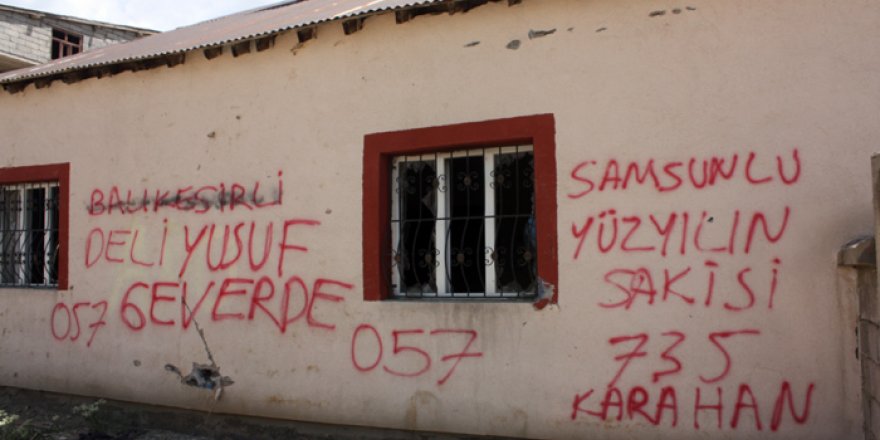 BALIKESİRLİ
DELİ YUSUF
057 GEVERDE
057
SAMSUNLU
YÜZYILIN
SAKİSİ
735
KARAHAN